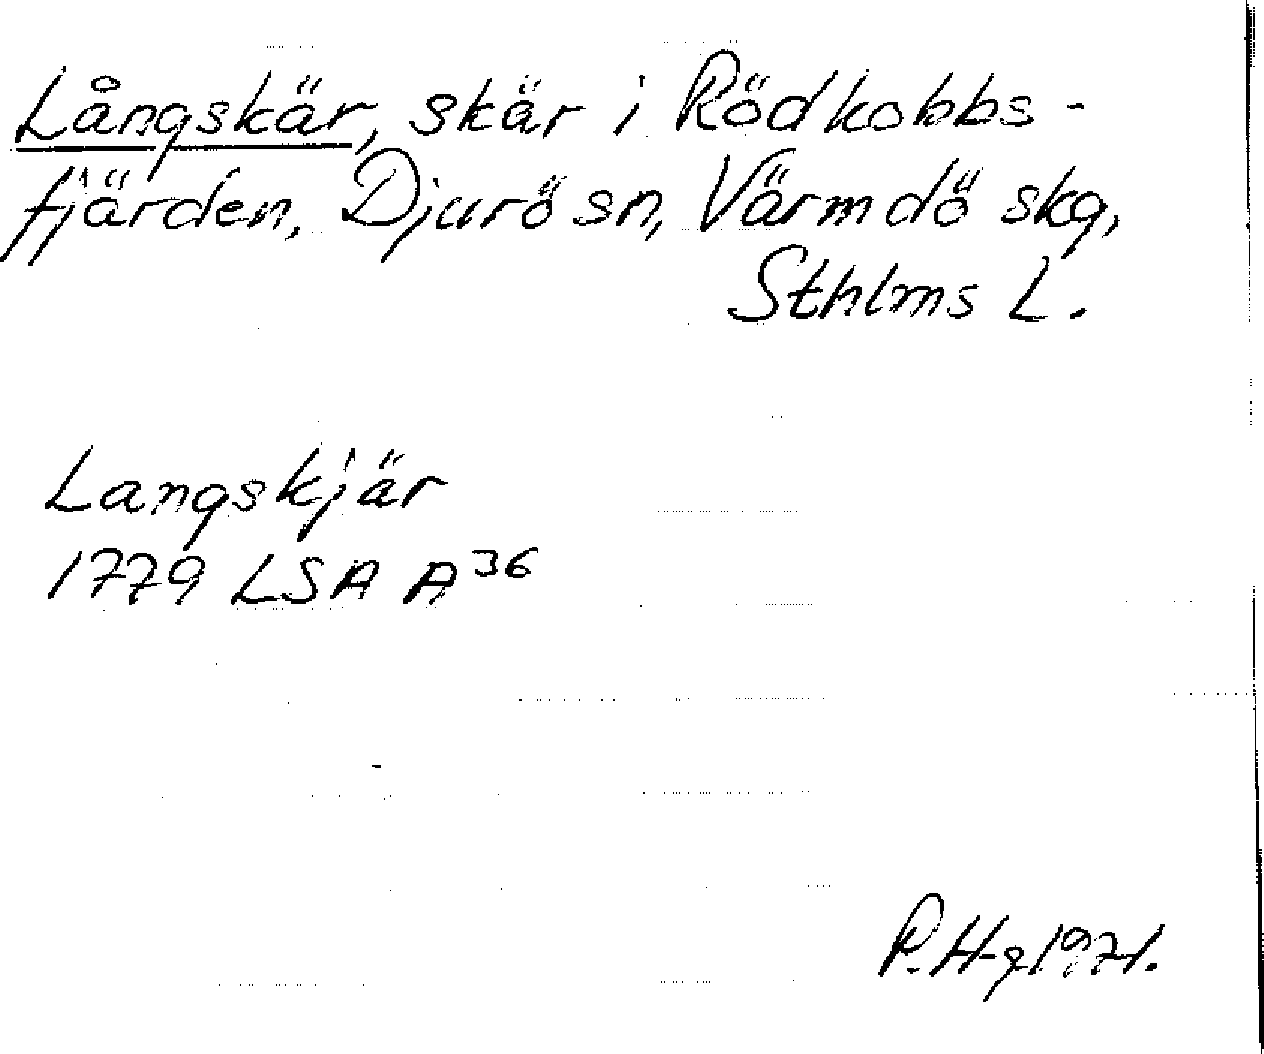 Långskär, skär i Rödkobbs-
fjärden, Djurö sn, Värmdö skg,
Sthlms L.
Langskjär
1779 LSA A36
P. H-g 1971.